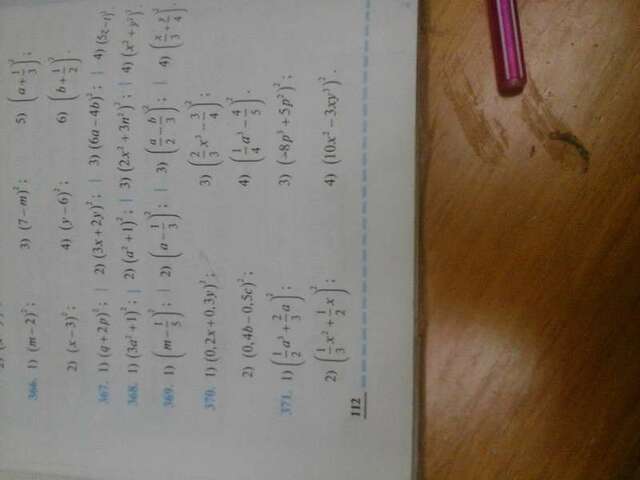 366. 1) (m−2)²; 3) (7−m)²; 5) (a+1/3)²;
2) (x−3)²; 4) (y−6)²; 6) (b+1/2)².
367. 1) (q+2p)²; | 2) (3x+2y)²; | 3) (6a−4b)²; | 4) (5z−t)².
368. 1) (3a²+1)²; | 2) (a²+1)²; | 3) (2x²+3n²)²; | 4) (x²+y²)².
369. 1) (m−1/5)²; | 2) (a−1/3)²; | 3) (a/2−b/3)²; | 4) (x/3+y/4)².
370. 1) (0,2x+0,3y)²; 3) (2/3x³−3/4)²;
2) (0,4b−0,5c)²; 4) (1/4a³−4/5)².
371. 1) (1/2a³+2/3a)²; 3) (−8p³+5p²)²;
2) (1/3x²+1/2x)²; 4) (10x²−3xy³)².
112